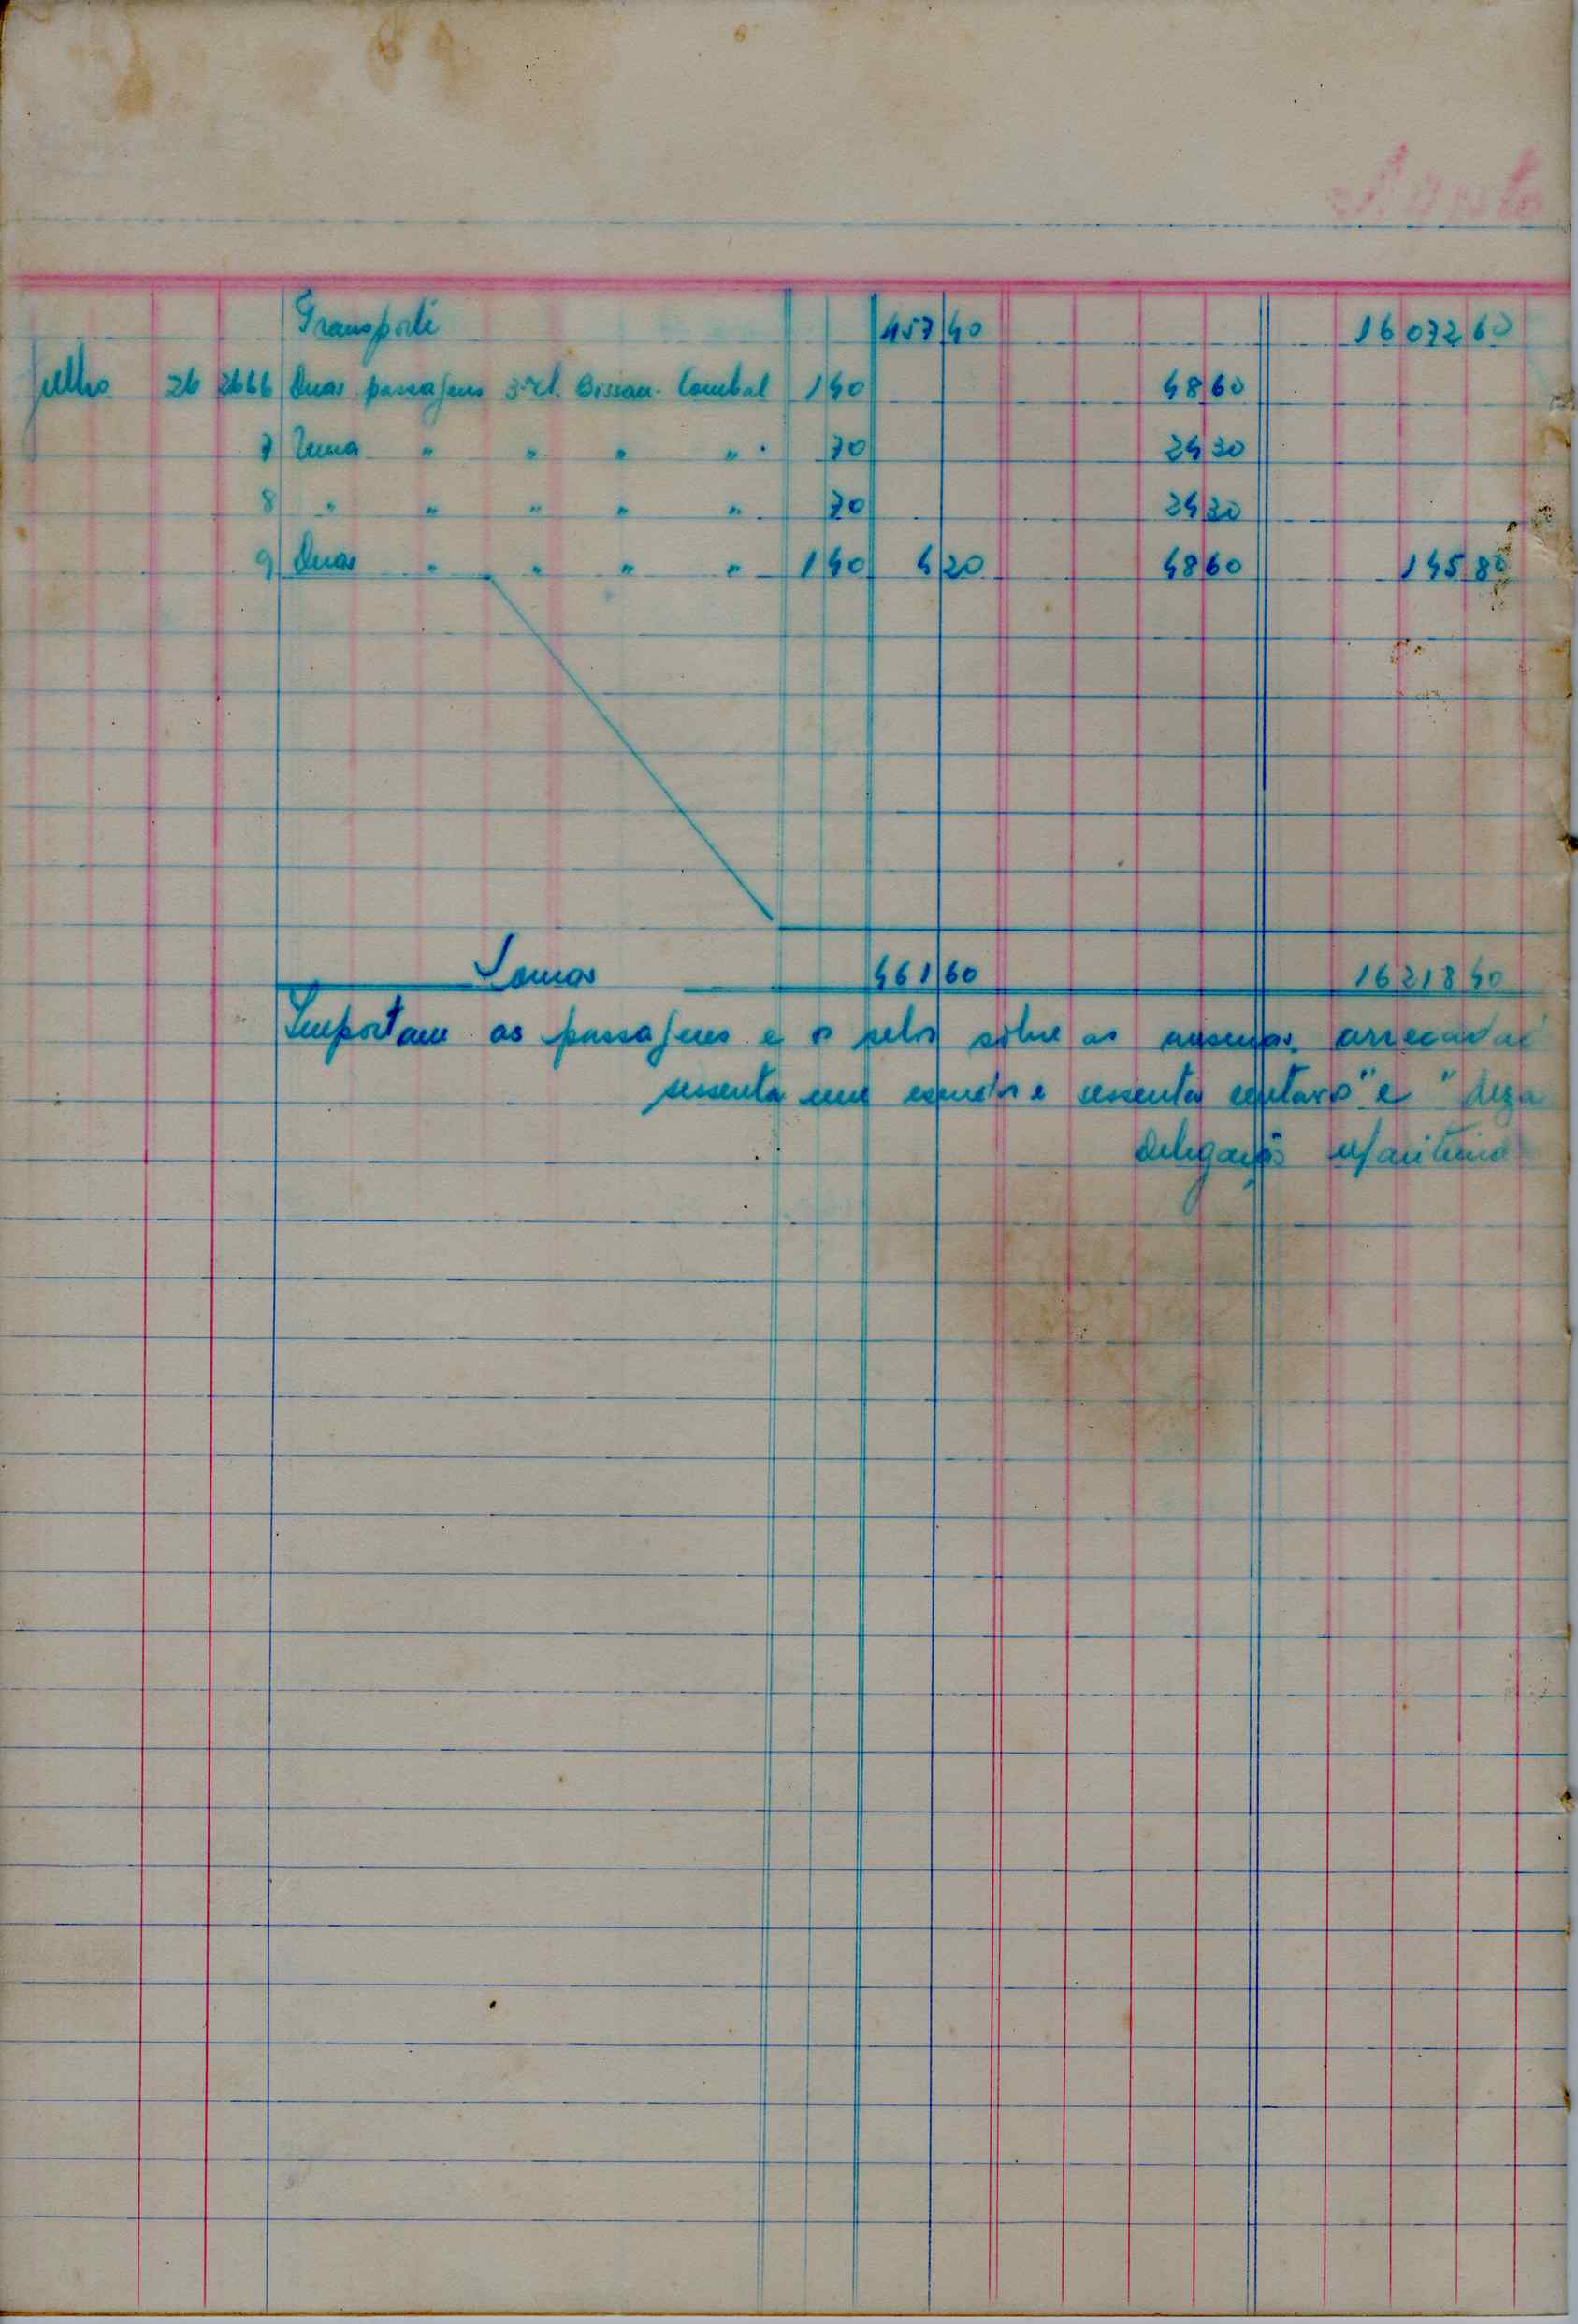 Transporte 457 40 16 072 60
Julho 26 2666 Duas passagens 3ª cl. Bissau-Cumbal 1 40 48 60
7 Uma " " " " 70 24 30
8 " " " " " 70 24 30
9 Duas " " " " 1 40 4 20 48 60 145 80
Somas 461 60 16 218 40
Importam as passagens e o selo sôbre as mesmas, arrecadad
sessenta um escudos e sessenta centavos" e "deza
Delegação Marítima